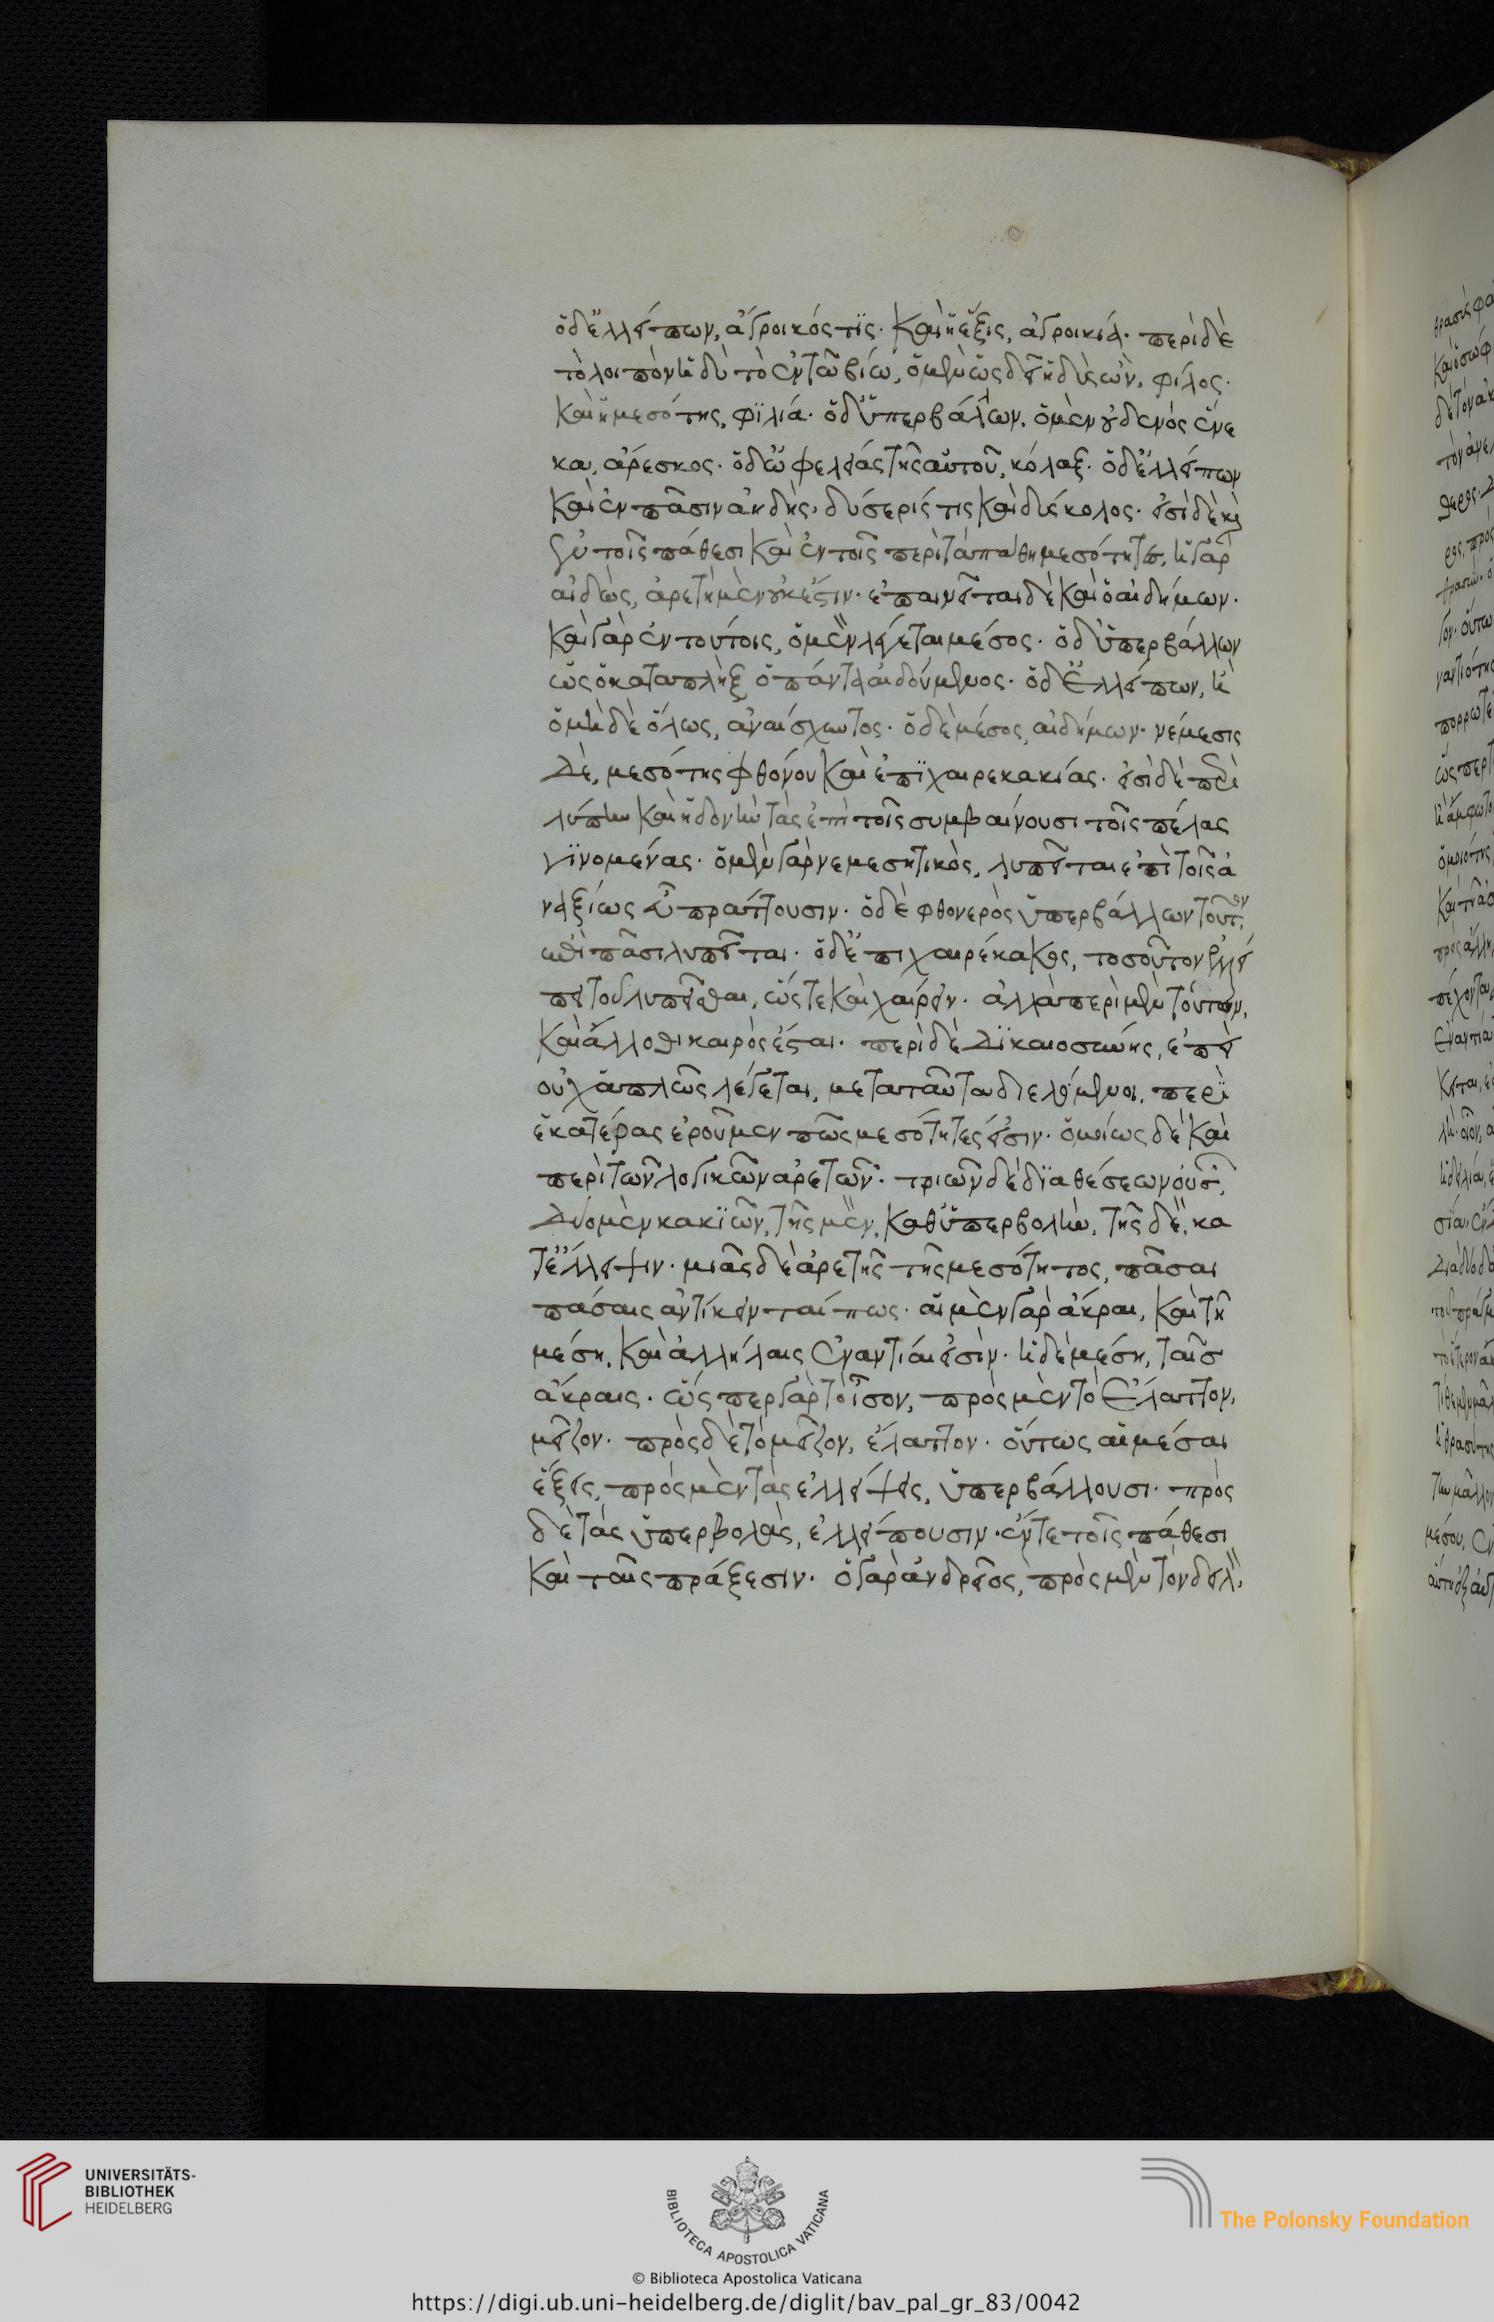 ὁ δ' ἐλλείπων, ἀγροικός τις. καὶ ἡ ἕξις, ἀγροικιά. περὶ δὲ
τὸ λοιπὸν ἡδὺ τὸ ἐν τῶ βίω, ὁ μὲν ὡς δεῖ ἡδὺς ὢν, φίλος.
καὶ ἡ μεσότης, φιλιά. ὁ δ' ὑπερβάλλων. ὁ μὲν οὐδενός ἕνε
κα, ἀρεσκος. ὁ δ' ὠφελείας τῆς αὑτοῦ, κόλαξ. ὁ δ' ἐλλείπων
καὶ ἐν πᾶσιν ἀηδὴς, δύσερίς τις καὶ δύσκολος. εἰσὶ δὲ καὶ
ἐν τοῖς πάθεσι καὶ ἐν τοῖς περὶ τὰ πάθη μεσότητες, ἡ γὰρ
αἰδὼς, ἀρετὴ μὲν οὐκ ἔστιν. ἐπαινεῖται δὲ καὶ ὁ αἰδήμων.
καὶ γὰρ ἐν τούτοις, ὁ μὲν λέγεται μέσος. ὁ δ' ὑπερβάλλων
ὡς ὁ καταπλὴξ ὁ πάντα αἰδούμενος. ὁ δ' ἐλλείπων, ἢ
ὁ μηδὲ ὅλως, ἀναίσχυντος. ὁ δὲ μέσος, αἰδήμων. νέμεσις
δὲ, μεσότης φθόνου καὶ ἐπιχαιρεκακίας. εἰσὶ δὲ περὶ
λύπην καὶ ἡδονὴν τὰς ἐπὶ τοῖς συμβαίνουσι τοῖς πέλας
γινομένας. ὁ μὲν γὰρ νεμεσητικὸς, λυπεῖται ἐπὶ τοῖς ἀ
ναξίως εὖ πράττουσιν. ὁ δὲ φθονερὸς ὑπερβάλλων τοῦτον,
ἐπὶ πᾶσι λυπεῖται. ὁ δ' ἐπιχαιρέκακος, τοσοῦτον ἐλλεί
πει τοῦ λυπεῖσθαι, ὥστε καὶ χαίρειν. ἀλλὰ περὶ μὲν τούτων,
καὶ ἄλλοθι καιρὸς ἔσται. περὶ δὲ δικαιοσύνης, ἐπεὶ
οὐχ ἁπλῶς λέγεται, μετὰ ταῦτα διελόμενοι, περὶ
ἑκατέρας ἐροῦμεν πῶς μεσότητές εἰσιν. ὁμοίως δὲ καὶ
περὶ τῶν λογικῶν ἀρετῶν. τριῶν δὲ διαθέσεων οὐσῶν,
δύο μὲν κακιῶν, τῆς μὲν, καθ' ὑπερβολὴν, τῆς δὲ, κα
τ' ἔλλειψιν. μιᾶς δὲ ἀρετῆς τῆς μεσότητος, πᾶσαι
πάσαις ἀντίκεινταί πως. αἱ μὲν γὰρ ἄκραι, καὶ τῆ
μέση, καὶ ἀλλήλαις ἐναντίαι εἰσὶν. ἡ δὲ μέση, ταῖς
ἄκραις. ὥσπερ γὰρ τὸ ἴσον, πρὸς μὲν τὸ ἔλαττον,
μεῖζον. πρὸς δὲ τὸ μεῖζον, ἔλαττον. οὕτως αἱ μέσαι
ἕξεις, πρὸς μὲν τὰς ἐλλείψεις, ὑπερβάλλουσι. πρὸς
δὲ τὰς ὑπερβολὰς, ἐλλείπουσιν. ἔν τε τοῖς πάθεσι
καὶ ταῖς πράξεσιν. ὁ γὰρ ἀνδρεῖος, πρὸς μὲν τὸν δειλὸν,
UNIVERSITÄTS-
BIBLIOTHEK
HEIDELBERG
BIBLIOTECA APOSTOLICA VATICANA
The Polonsky Foundation
© Biblioteca Apostolica Vaticana
https://digi.ub.uni-heidelberg.de/diglit/bav_pal_gr_83/0042